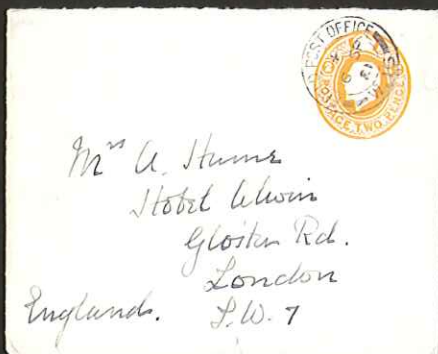 POST OFFICE
POSTAGE TWO PENCE
Mrs A. Hume
Hotel
Gloster Rd.
London
England. S.W. 7